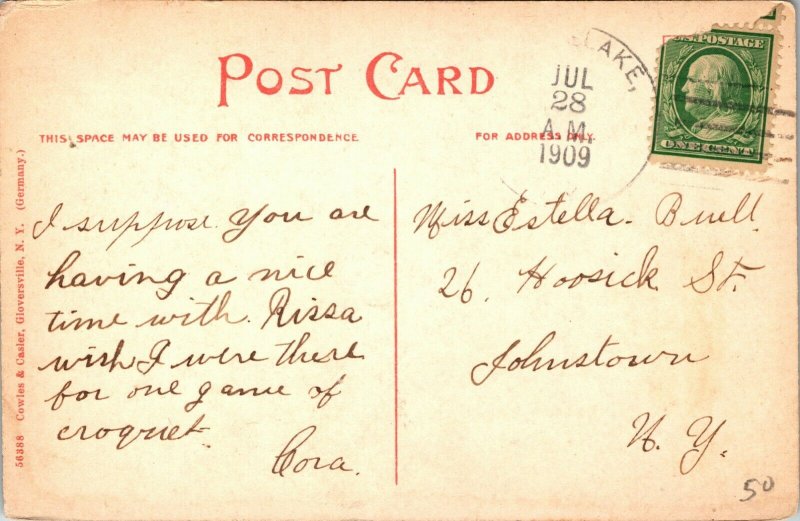 POST CARD
THIS SPACE MAY BE USED FOR CORRESPONDENCE
FOR ADDRESS ONLY.
LAKE,
JUL
28
A.M.
1909
U.S. POSTAGE
ONE CENT
56388 Cowles & Casler, Gloversville, N. Y. (Germany.)
I suppose you are
having a nice
time with Rissa
wish I were there
for one game of
croquet.
Cora.
Miss Estella Buell
26. Hoosick St.
Johnstown
N. Y.
50